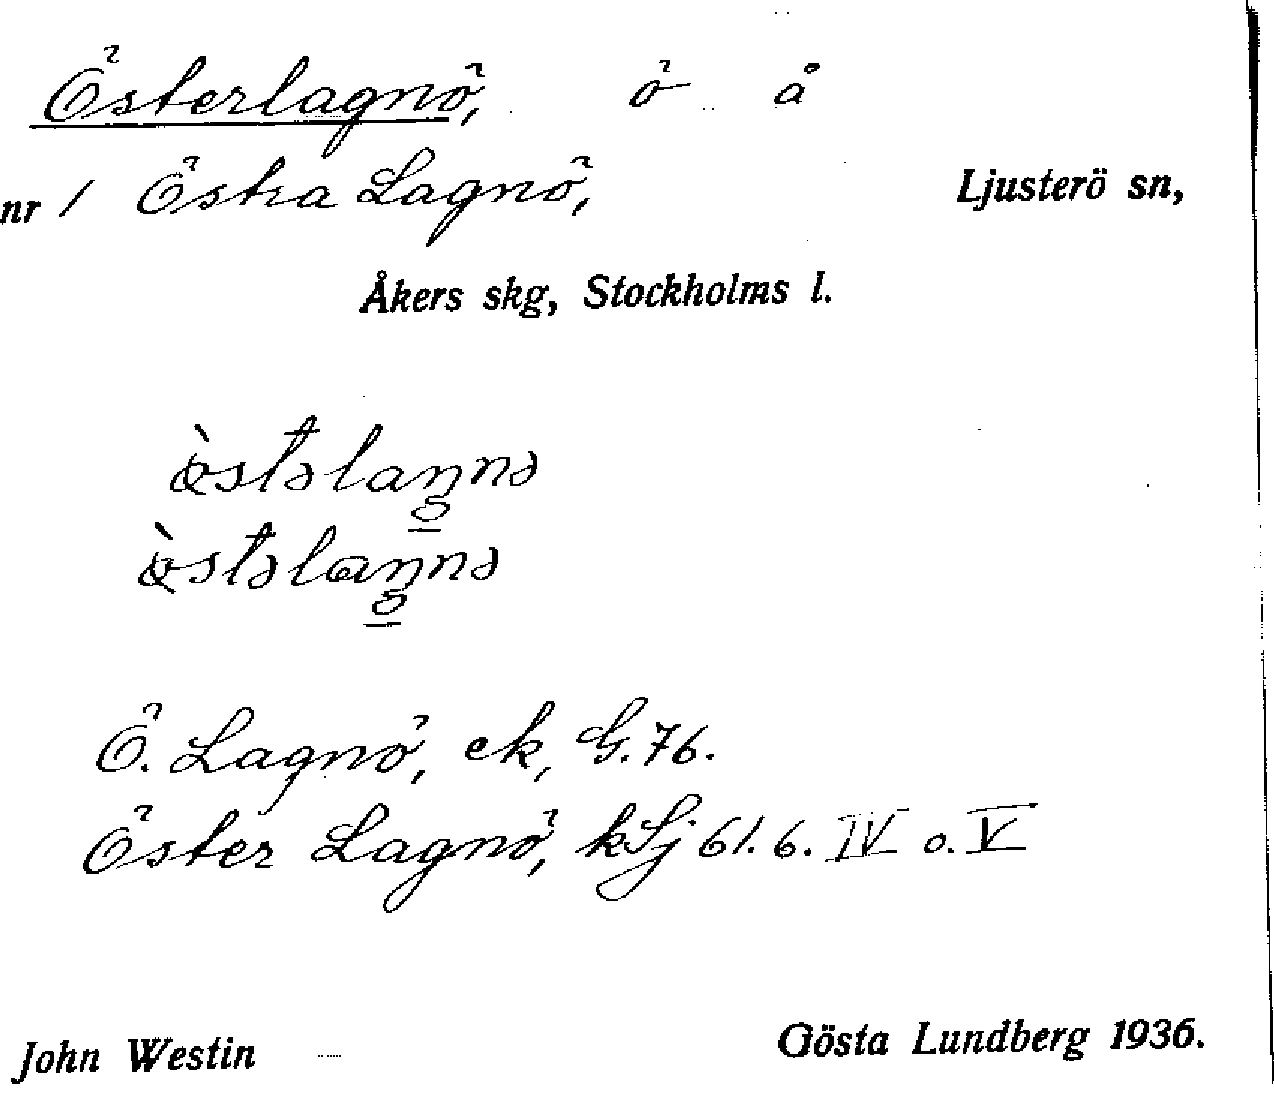 Österlagnö, ö å
nr 1 Östra Lagnö, Ljusterö sn,
Åkers skg, Stockholms l.
Ö. Lagnö, ek, G. 76.
Öster Lagnö, kLj 61. 6. IV o. V
John Westin Gösta Lundberg 1936.